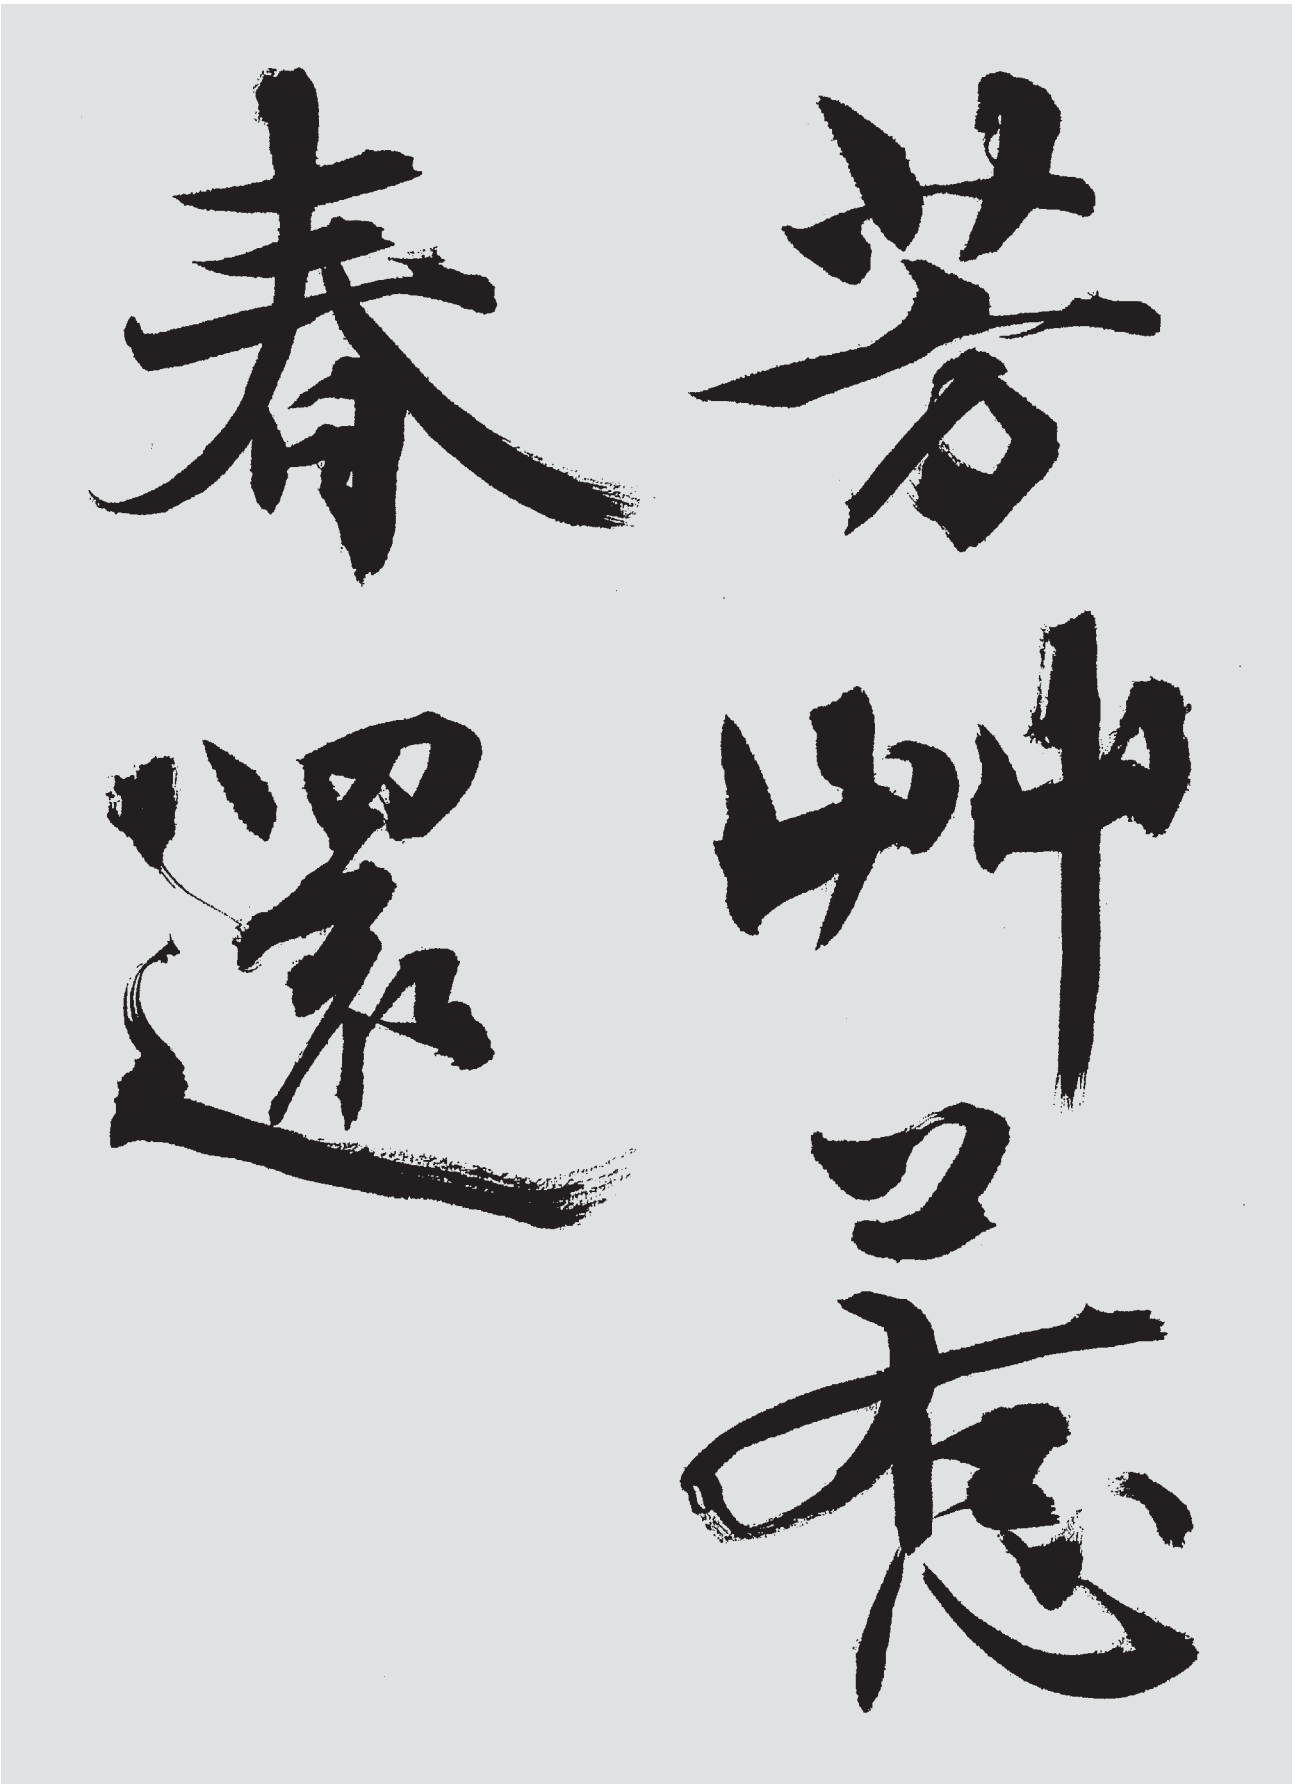 芳艸
春還